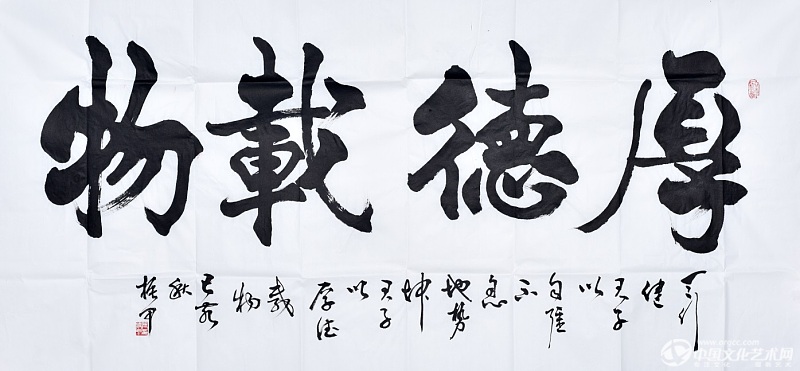 厚德載物
天行
健
君子
以
自彊
不
息
地势
坤
君子
以
厚德
载
物
己亥
秋
中国文化艺术网
www.orgcc.com